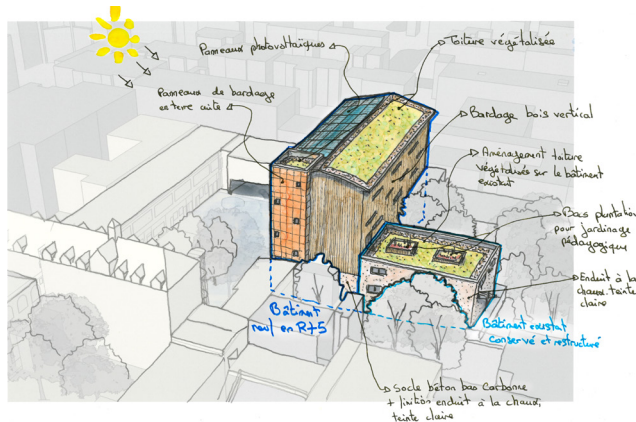 Panneaux photovoltaïques
Toiture végétalisée
Panneaux de bardage
en terre cuite
Bardage bois vertical
Aménagement toiture
végétalisés sur le bâtiment
existant
Bacs plantation
pour jardinage
pédagogique
Enduit à la
chaux teinte
claire
Bâtiment
neuf en R+5
Bâtiment existat
conservé et restructuré
Socle béton bas carbone
+ finition enduit à la chaux,
teinte claire